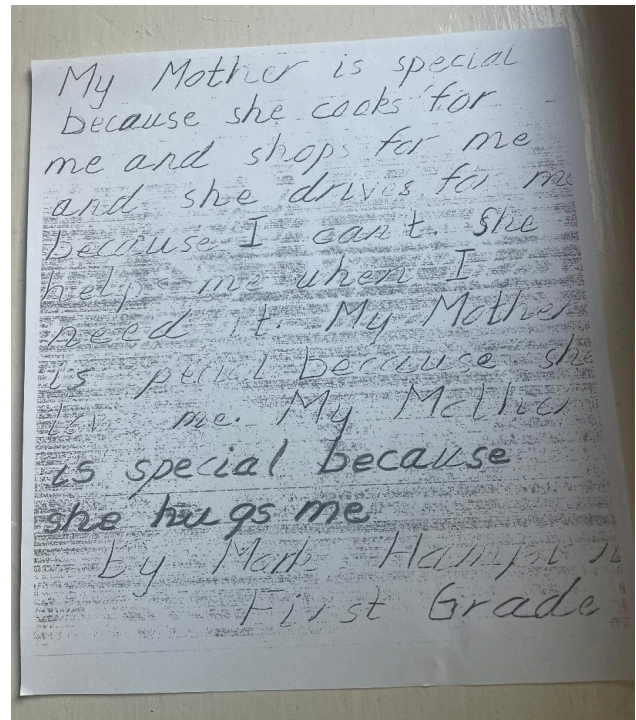 My Mother is special
because she cooks for
me and shops for me
and she drives for me
because I can't. She
helps me when I
need it. My Mother
is special because she
me. My Mother
is special because
she hugs me
by Mark
First Grade